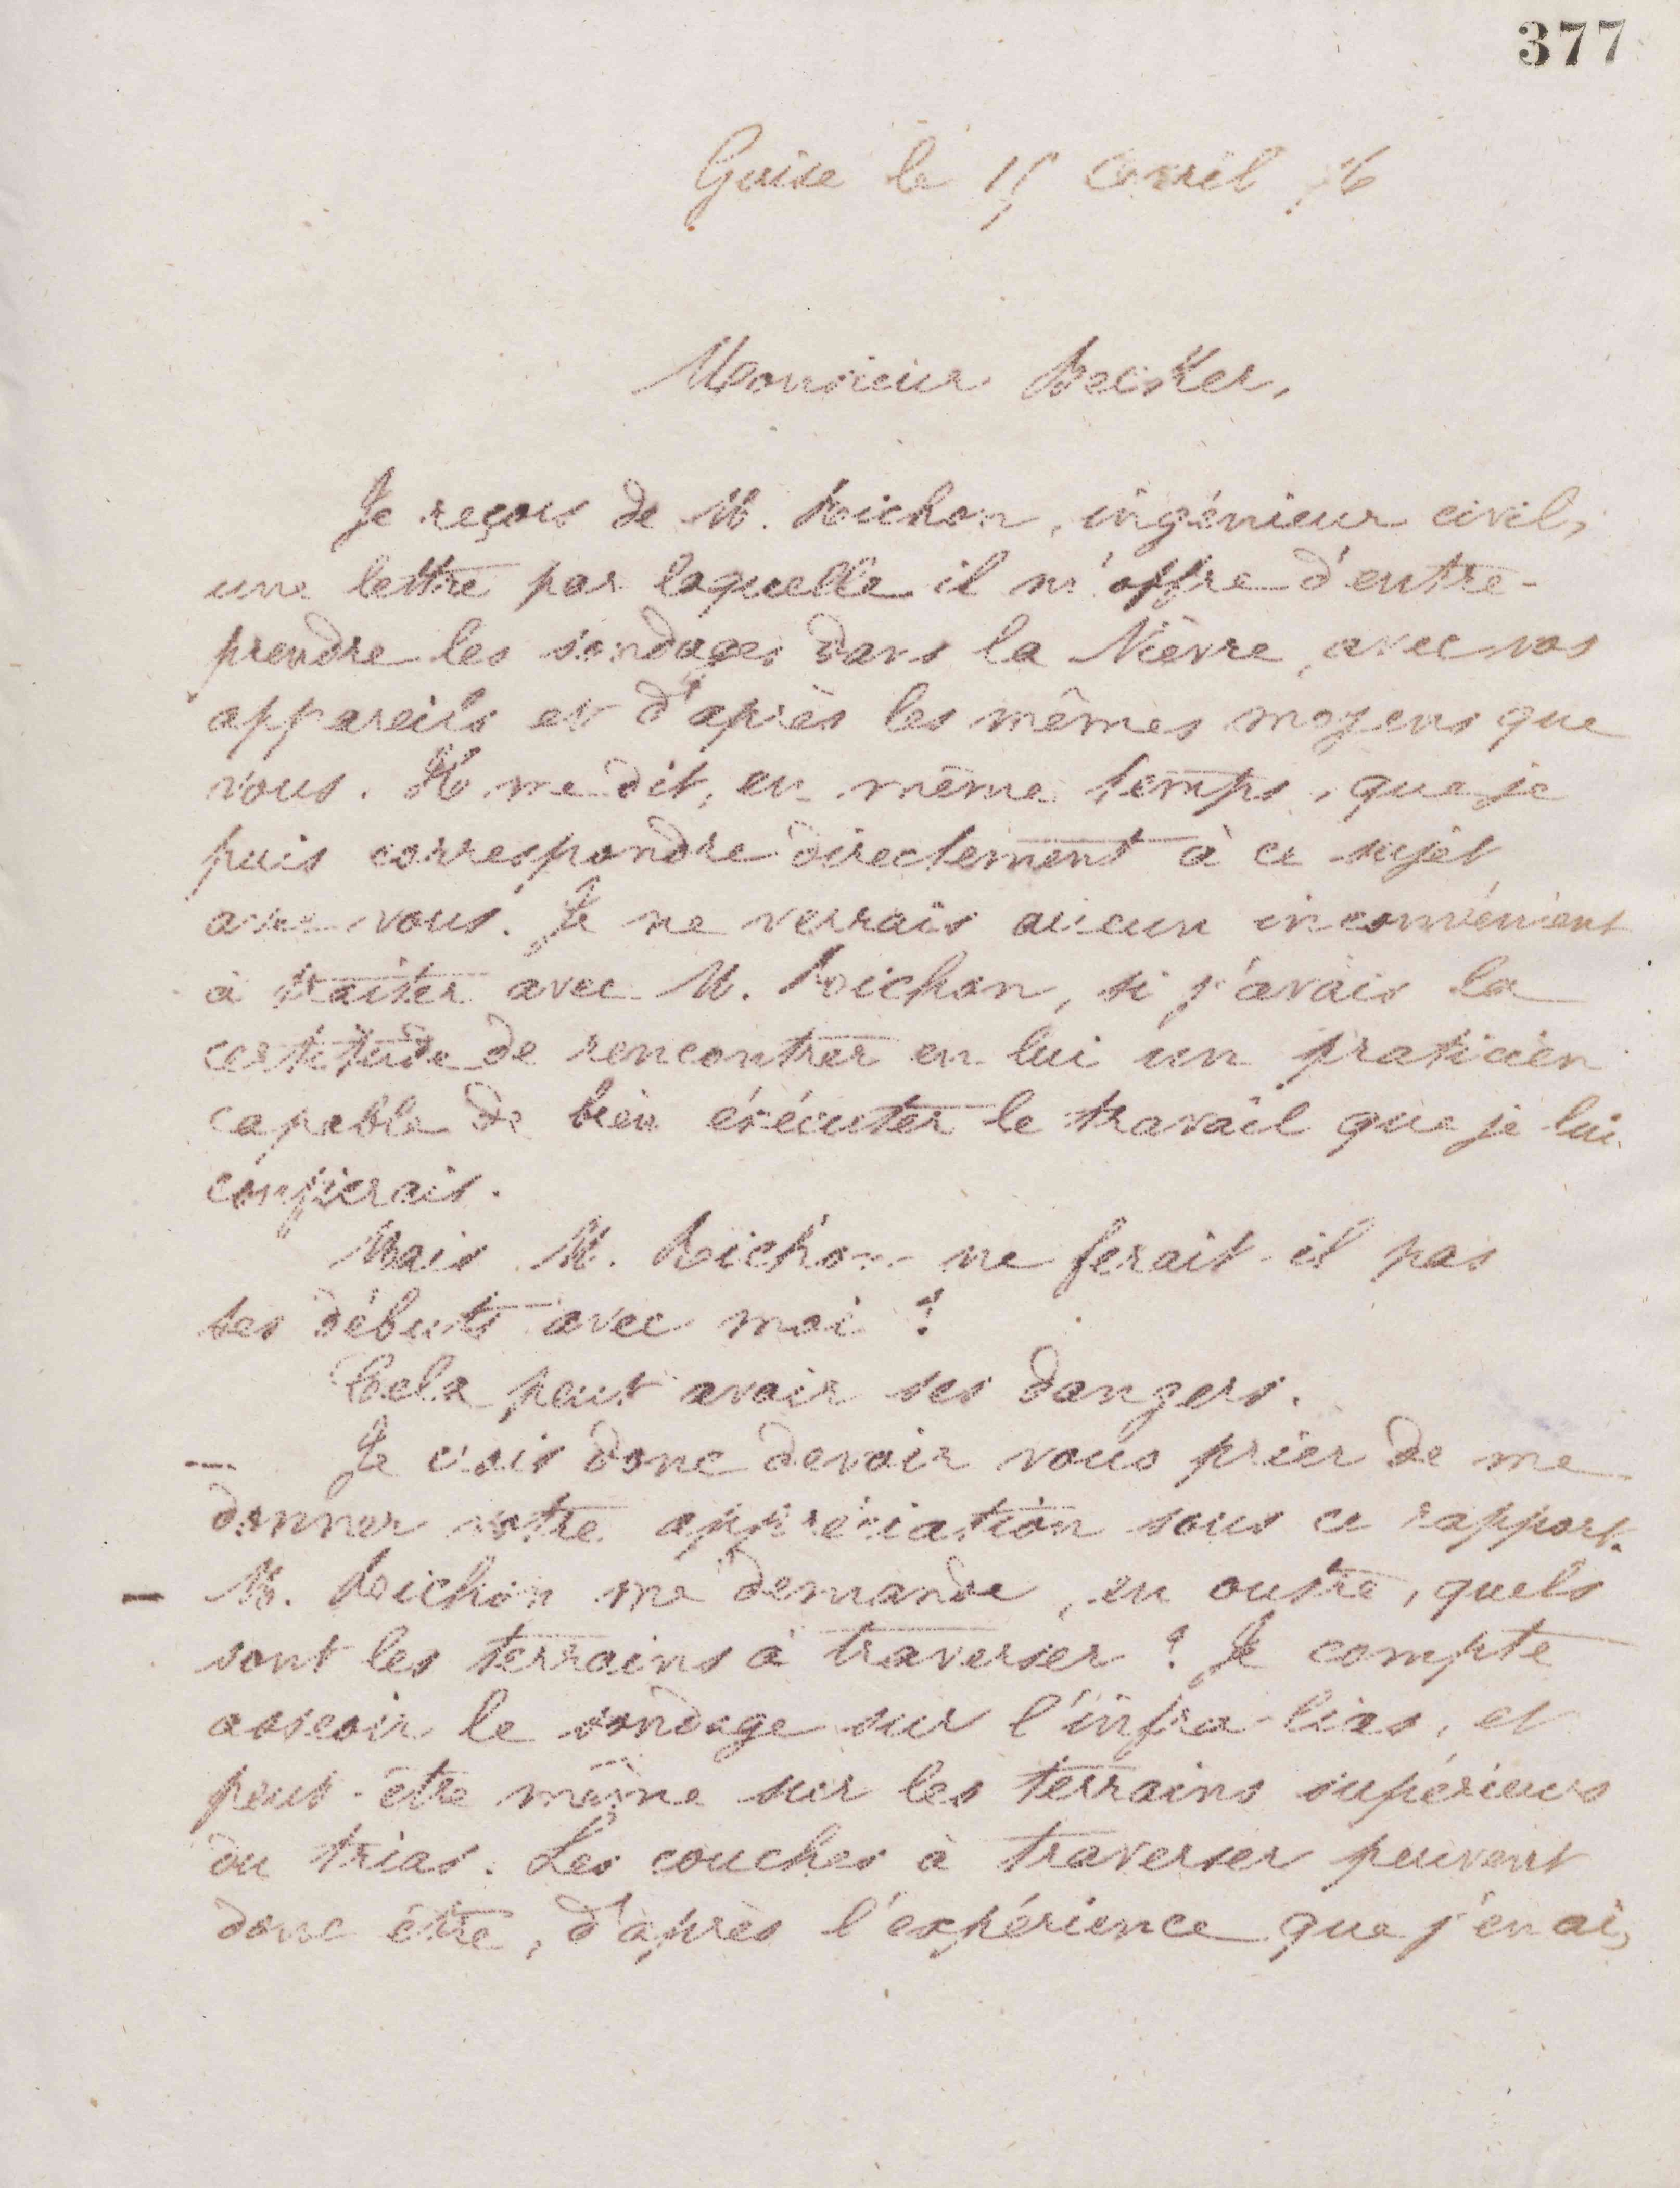 377
Guise le 15 Avril 76
Monsieur Becker,
Je reçois de M. Pichon, ingénieur civil,
une lettre par laquelle il m'offre d'entre-
prendre les sondages dans la Nièvre, avec vos
appareils et d'après les mêmes moyens que
vous. Il me dit, en même temps, que je
puis correspondre directement à ce sujet
avec vous. Je ne verrais aucun inconvénient
à traiter avec M. Pichon, si j'avais la
certitude de rencontrer en lui un praticien
capable de bien exécuter le travail que je lui
confierais.
Mais M. Pichon ne ferait-il pas
ses débuts avec moi ?
Cela peut avoir ses dangers.
— Je crois donc devoir vous prier de me
donner votre appréciation sous ce rapport.
— M. Pichon me demande, en outre, quels
sont les terrains à traverser ? Je compte
asseoir le sondage sur l'infra-lias, et
peut-être même sur les terrains supérieurs
du trias. Les couches à traverser peuvent
donc être, d'après l'expérience que j'en ai,